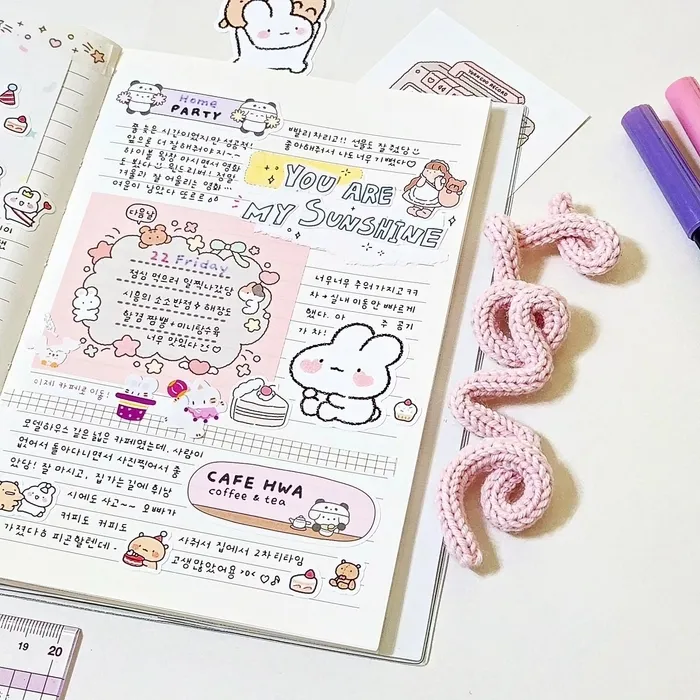 Home
PARTY
짧은 시간이었지만 성공적!
앞으로 더 잘해줘야지~~
하이볼 왕창 마시면서 영화
도 봤다 윈드리버! 정말
겨울과 잘 어울리는 영화...
여운이 남았다 또르르
빨리 차리고!! 선물도 잘 줬당
좋아해줘서 나도 너무 기뻤다♡
YOU ARE
MY SUNSHINE
다음날
22 Friday
점심 먹으러 일찍 나갔당
시흥의 소소반점 + 해장도
할겸 짬뽕 + 미니탕수육
너무 맛있다 ♡
너무너무 추워가지고 ㅋㅋ
차 → 실내 이동만 빠르게
했다. 아 주 공기
가 차!
이제 카페로 이동!
모델하우스 같은 넓은 카페였는데, 사람이
없어서 돌아다니면서 사진찍어서 좋
았당! 잘 마시고, 집가는 길에 휘낭
시에도 사고~~ 오빠가
커피도 커피도
가졌다 피곤할렌데
CAFE HWA
coffee & tea
사줘서 집에서 2차 티타임
고생 많았어용 ♡
19 20